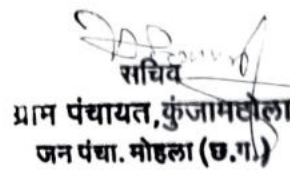 सचिव
ग्राम पंचायत, कुंजामटोला
जन पंचा. मोहला (छ.ग.)